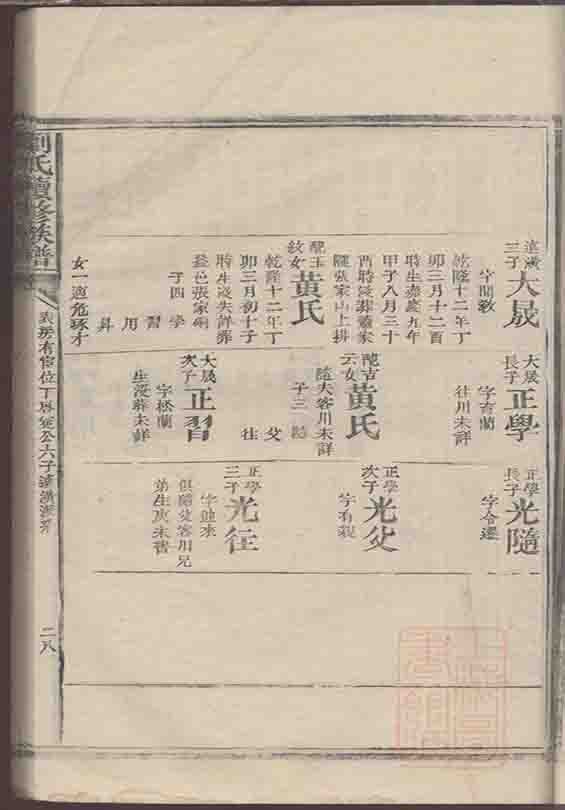 三子 大晟
乾隆十二年丁
卯三月十二酉
時生嘉慶九年
甲子八月三十
酉時歿葬蕭家
隴張家山上排
配玉紋女 黃氏
乾隆十二年丁
卯三月初十子
時生歿失詳葬
益邑張家硐
子四 學 習 用 昇
女一適危琢才
大晟長子 正學
字育蘭
往川未詳
配古云女 黃氏
隨夫客川未詳
子三 隨 父 往
大晟次子 正習
字松蘭
生歿葬未詳
正學長子 光隨
字令遷
正學次子 光父
字有親
正學三子 光往
字健來
俱隨父客川兄
弟生庚未書
劉氏續修族譜
房有信位下 公六子
二八